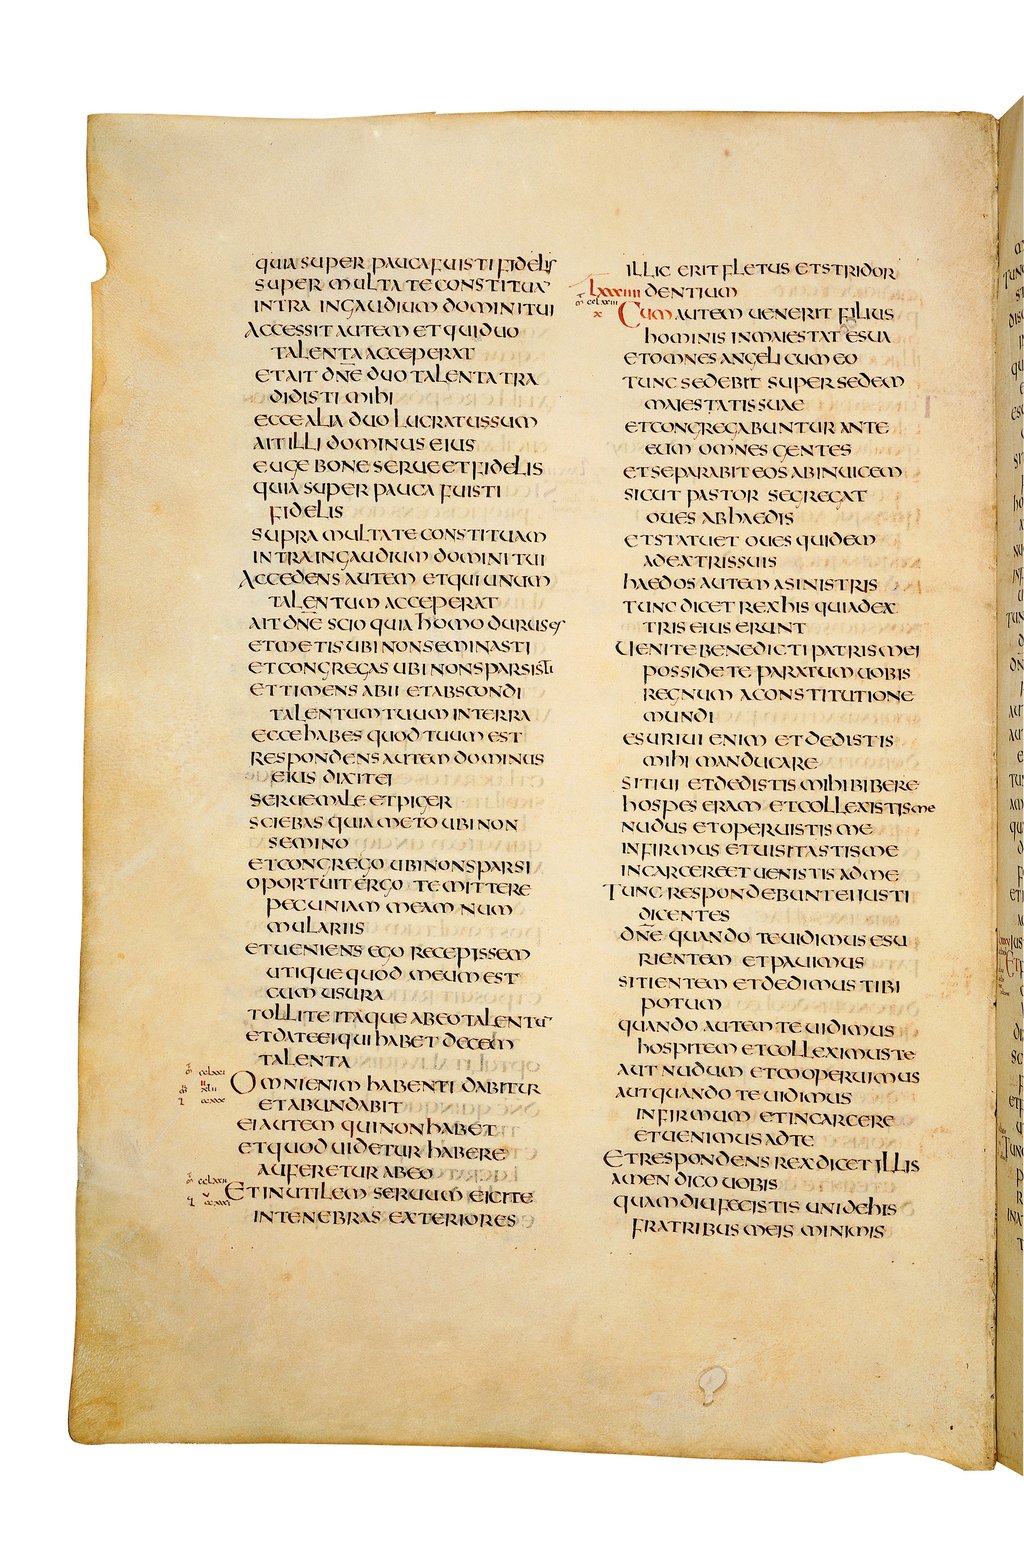 QUIA SUPER PAUCA FUISTI FIDELIS
SUPER MULTA TE CONSTITUA
INTRA IN GAUDIUM DOMINI TUI
ACCESSIT AUTEM ET QUI DUO
TALENTA ACCEPERAT
ET AIT DN̅E DUO TALENTA TRA
DIDISTI MIHI
ECCE ALIA DUO LUCRATUS SUM
AIT ILLI DOMINUS EIUS
EUGE BONE SERUE ET FIDELIS
QUIA SUPER PAUCA FUISTI
FIDELIS
SUPRA MULTA TE CONSTITUAM
INTRA IN GAUDIUM DOMINI TUI
ACCEDENS AUTEM ET QUI UNUM
TALENTUM ACCEPERAT
AIT DN̅E SCIO QUIA HOMO DURUS ES
ET METIS UBI NON SEMINASTI
ET CONGREGAS UBI NON SPARSISTI
ET TIMENS ABII ET ABSCONDI
TALENTUM TUUM IN TERRA
ECCE HABES QUOD TUUM EST
RESPONDENS AUTEM DOMINUS
EIUS DIXIT EI
SERUE MALE ET PIGER
SCIEBAS QUIA METO UBI NON
SEMINO
ET CONGREGO UBI NON SPARSI
OPORTUIT ERGO TE MITTERE
PECUNIAM MEAM NUM
MULARIIS
ET UENIENS EGO RECEPISSEM
UTIQUE QUOD MEUM EST
CUM USURA
TOLLITE ITAQUE AB EO TALENTU
ET DATE EI QUI HABET DECEM
TALENTA
OMNI ENIM HABENTI DABITUR
ET ABUNDABIT
EI AUTEM QUI NON HABET
ET QUOD UIDETUR HABERE
AUFERETUR AB EO
ET INUTILEM SERUUM EICITE
IN TENEBRAS EXTERIORES
ILLIC ERIT FLETUS ET STRIDOR
LXXXIIII DENTIUM
CUM AUTEM UENERIT FILIUS
HOMINIS IN MAIESTATE SUA
ET OMNES ANGELI CUM EO
TUNC SEDEBIT SUPER SEDEM
MAIESTATIS SUAE
ET CONGREGABUNTUR ANTE
EUM OMNES GENTES
ET SEPARABIT EOS AB INUICEM
SICUT PASTOR SEGREGAT
OUES AB HAEDIS
ET STATUET OUES QUIDEM
A DEXTRIS SUIS
HAEDOS AUTEM A SINISTRIS
TUNC DICET REX HIS QUI A DEX
TRIS EIUS ERUNT
UENITE BENEDICTI PATRIS MEI
POSSIDETE PARATUM UOBIS
REGNUM A CONSTITUTIONE
MUNDI
ESURIUI ENIM ET DEDISTIS
MIHI MANDUCARE
SITIUI ET DEDISTIS MIHI BIBERE
HOSPES ERAM ET COLLEXISTIS ME
NUDUS ET OPERUISTIS ME
INFIRMUS ET UISITASTIS ME
IN CARCERE ET UENISTIS AD ME
TUNC RESPONDEBUNT EI IUSTI
DICENTES
DN̅E QUANDO TE UIDIMUS ESU
RIENTEM ET PAUIMUS
SITIENTEM ET DEDIMUS TIBI
POTUM
QUANDO AUTEM TE UIDIMUS
HOSPITEM ET COLLEXIMUS TE
AUT NUDUM ET COOPERUIMUS
AUT QUANDO TE UIDIMUS
INFIRMUM ET IN CARCERE
ET UENIMUS AD TE
ET RESPONDENS REX DICET ILLIS
AMEN DICO UOBIS
QUAMDIU FECISTIS UNI DE HIS
FRATRIBUS MEIS MINIMIS